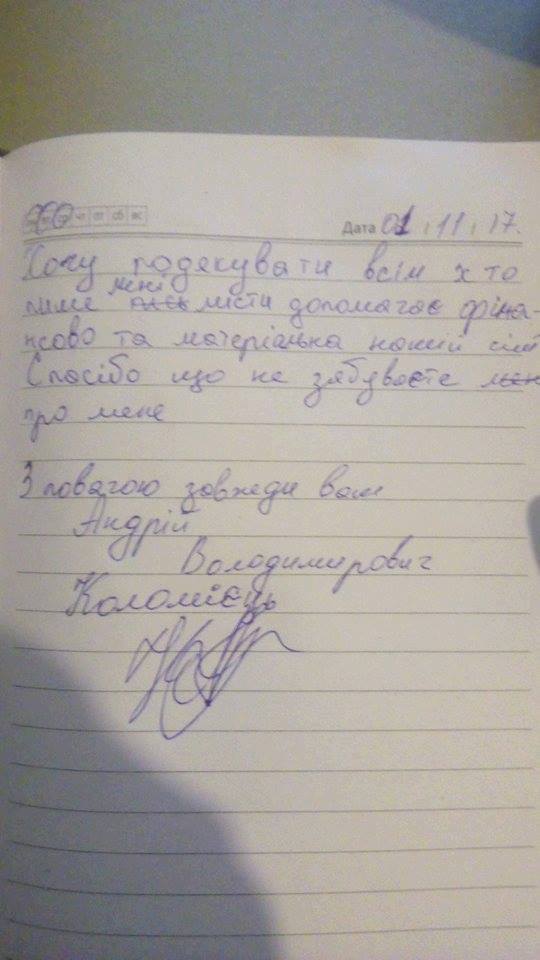 чт пт сб вс
Дата 01.11.17.
Хочу подякувати всім хто
пише мені листи допомагає фіна-
нсово та матеріальна нашій сімї
Спасібо що не забуваєте мен
про мене
З повагою завжеди ваш
Андрій
Володимирович
Коломієць